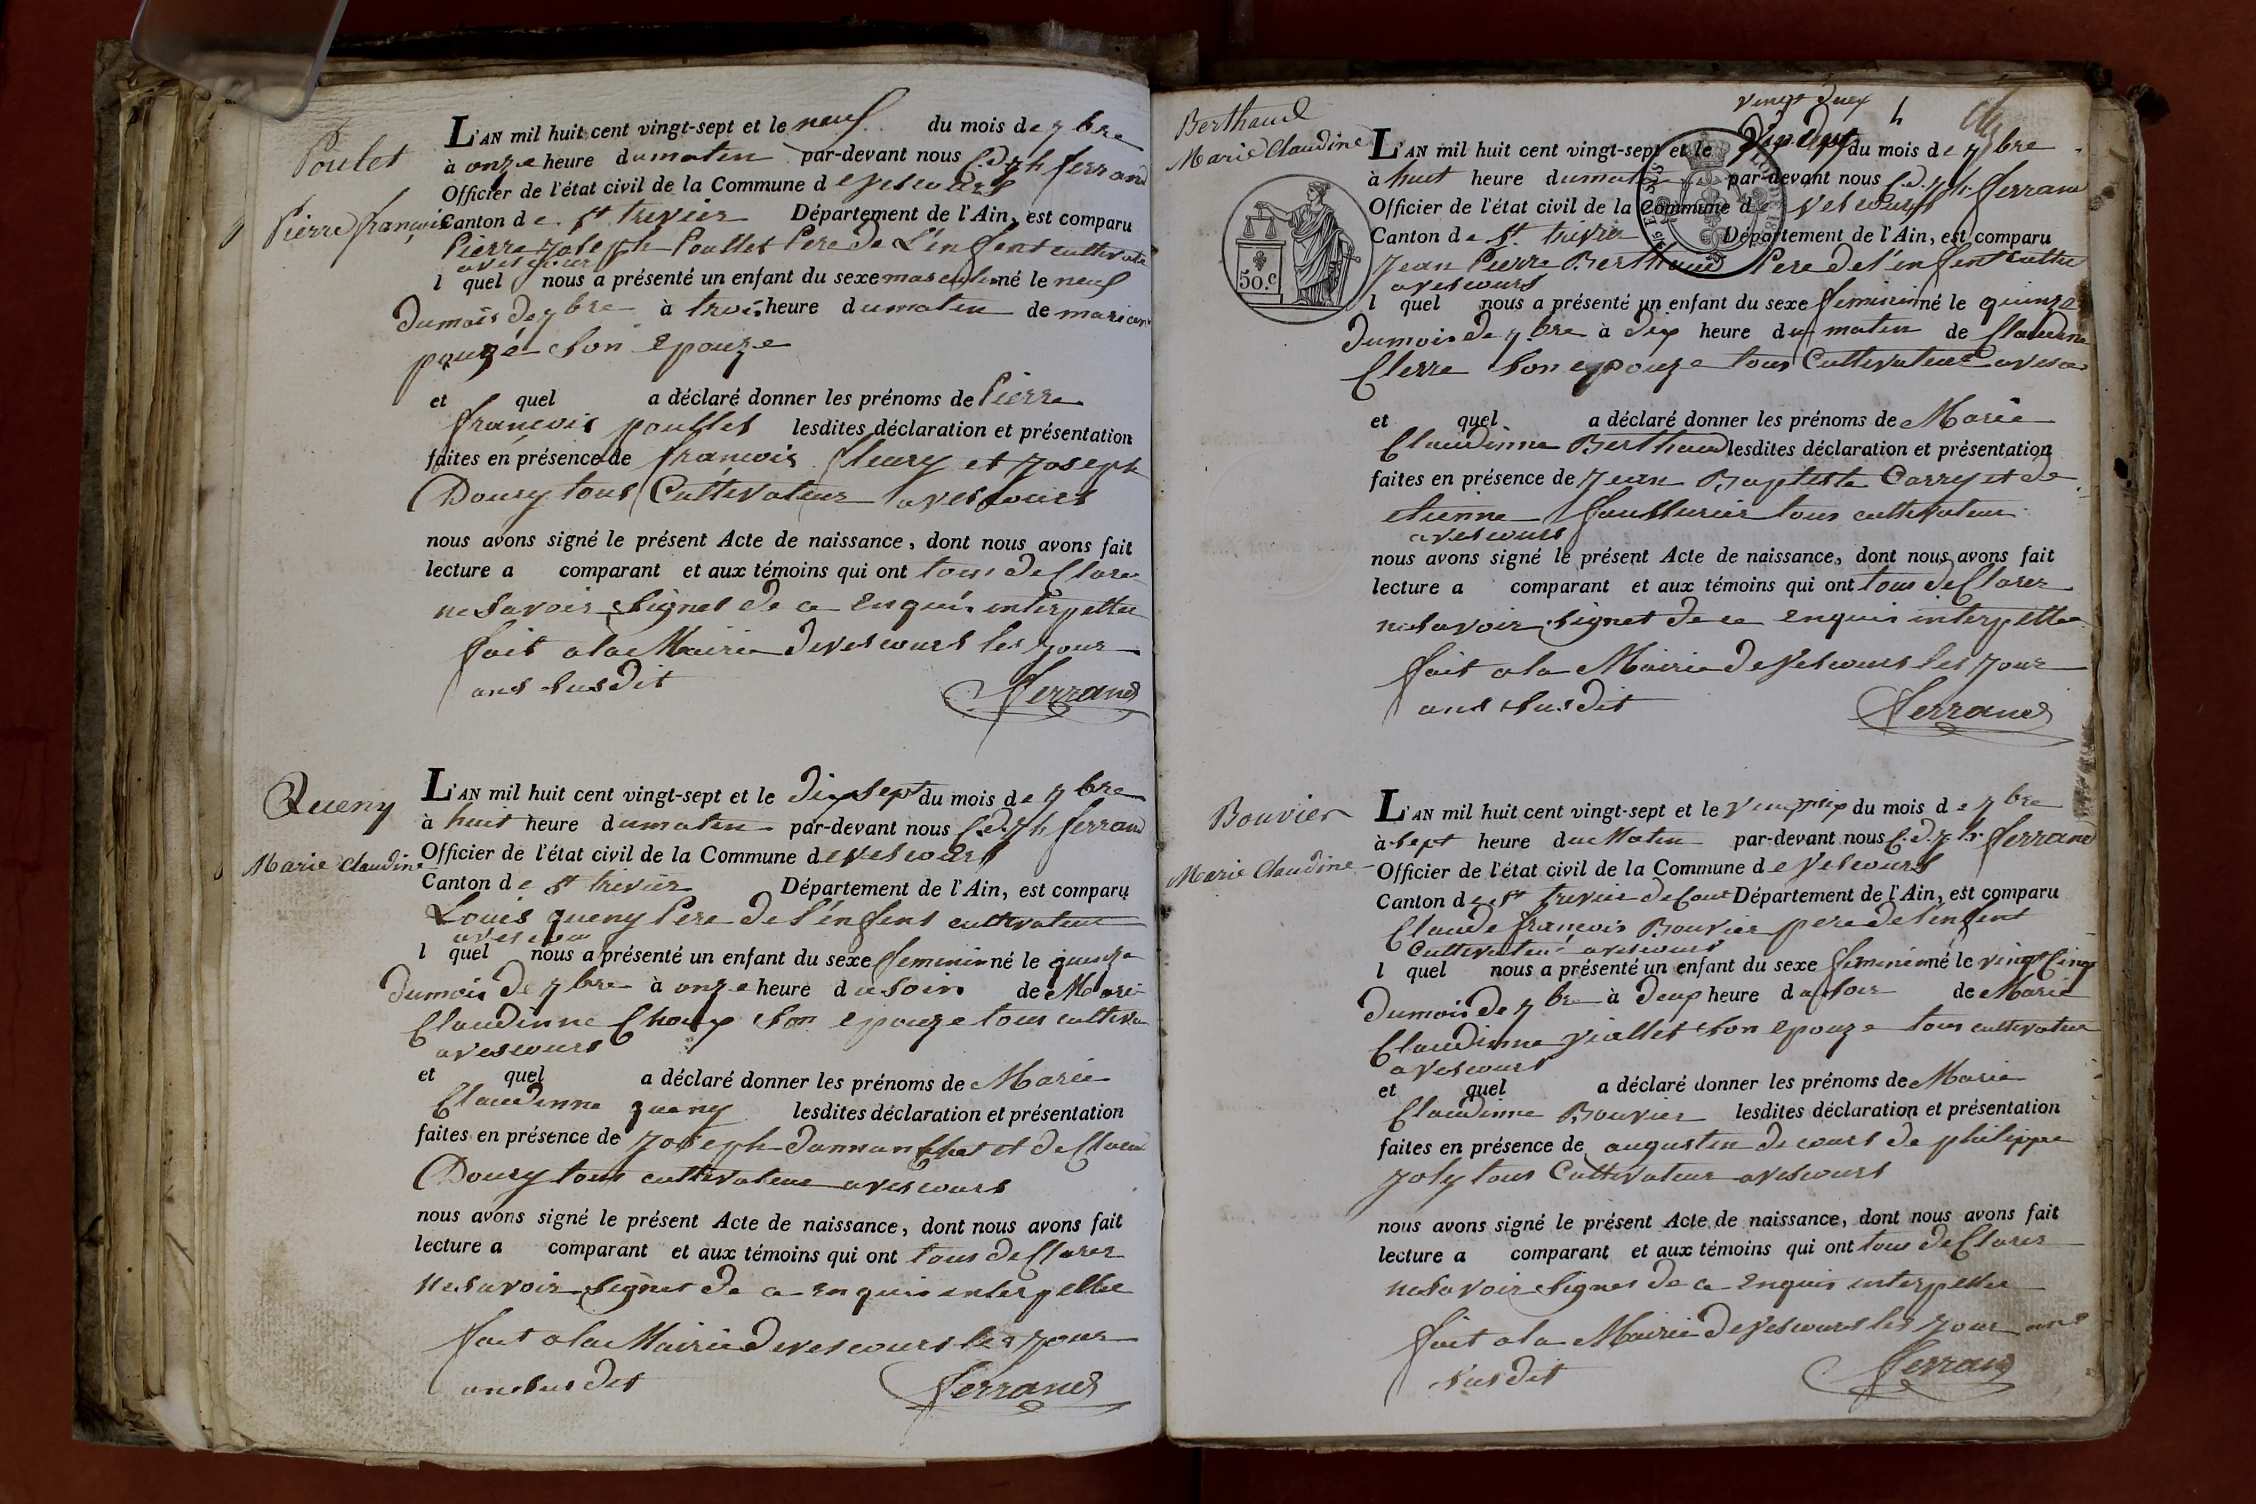 Poulet
Pierre françois
L'AN mil huit cent vingt-sept et le neuf du mois de 7bre
à onze heure du matin par-devant nous C.d. jh ferrand
Officier de l'état civil de la Commune de vescours
Canton de St trivier Département de l'Ain, est comparu
Pierre joseph Poullet Pere de L'enfent cultivate
a vescours
l quel nous a présenté un enfant du sexe masculin né le neuf
du mois de 7bre à trois heure du matin de marie
son epouze
et quel a déclaré donner les prénoms de Pierre
francois poullet lesdites déclaration et présentation
faites en présence de francois fleury et joseph
Doury tous Cultivateur a vescours
nous avons signé le présent Acte de naissance, dont nous avons fait
lecture a comparant et aux témoins qui ont tous declarer
ne savoir signet de ce enquis interpellee
fait a la Mairie de vescours les jour
ans susdit
ferrand
Queny
Marie Claudine
L'AN mil huit cent vingt-sept et le dix sept du mois de 7bre
à huit heure du matin par-devant nous C.d. jh ferrand
Officier de l'état civil de la Commune de vescours
Canton de St trivier Département de l'Ain, est comparu
Louis queny Pere de l'enfent cultivateur
a vescour
l quel nous a présenté un enfant du sexe feminin né le quinze
du mois de 7bre à onze heure du soir de Marie
Claudinne Choux son epouze tous cultiva
a vescours
et quel a déclaré donner les prénoms de Marie
Claudinne queny lesdites déclaration et présentation
faites en présence de joseph et de Claude
Doury tous cultivateur a vescours
nous avons signé le présent Acte de naissance, dont nous avons fait
lecture a comparant et aux témoins qui ont tous declarer
ne savoir signet de ce enquis interpellee
fait a la Mairie de vescours les jour
an susdit
ferrand
Berthaud
Marie Claudine
50.c
vingt deux
L'AN mil huit cent vingt-sept et le du mois de 7bre
à huit heure du matin par-devant nous C.d. jh. ferrand
Officier de l'état civil de la Commune de vescours
Canton de St trivier Département de l'Ain, est comparu
jean Pierre Berthaud Pere de l'enfent cultiv
a vescours
l quel nous a présenté un enfant du sexe feminin né le quinze
du mois de 7bre à dix heure du matin de Claudine
Clerre son epouze tous Cultivateur a vesco
et quel a déclaré donner les prénoms de Marie
Claudinne Berthaud lesdites déclaration et présentation
faites en présence de jean Baptiste Carry et de
etienne tous cultivateur
a vescours
nous avons signé le présent Acte de naissance, dont nous avons fait
lecture a comparant et aux témoins qui ont tous declarer
ne savoir signet de ce enquis interpellee
fait a la Mairie de vescours les jour
ans susdit
ferrand
Bouvier
Marie Claudine
L'AN mil huit cent vingt-sept et le du mois de 7bre
à sept heure du Matin par-devant nous C.d. jh. ferrand
Officier de l'état civil de la Commune de vescours
Canton de St trivier de Cour Département de l'Ain, est comparu
Claude francois Bouvier pere de l'enfent
Cultivateur a vescours
l quel nous a présenté un enfant du sexe feminin né le vingt Cinq
du mois de 7bre à deux heure du soir de Marie
Claudinne viallet son epouze tous cultivateur
a vescours
et quel a déclaré donner les prénoms de Marie
Claudinne Bouvier lesdites déclaration et présentation
faites en présence de augustin de cours de philippe
joly tous Cultivateur a vescours
nous avons signé le présent Acte de naissance, dont nous avons fait
lecture a comparant et aux témoins qui ont tous declarer
ne savoir signet de ce enquis interpellee
fait a la Mairie de vescours les jour ans
susdit
ferrand